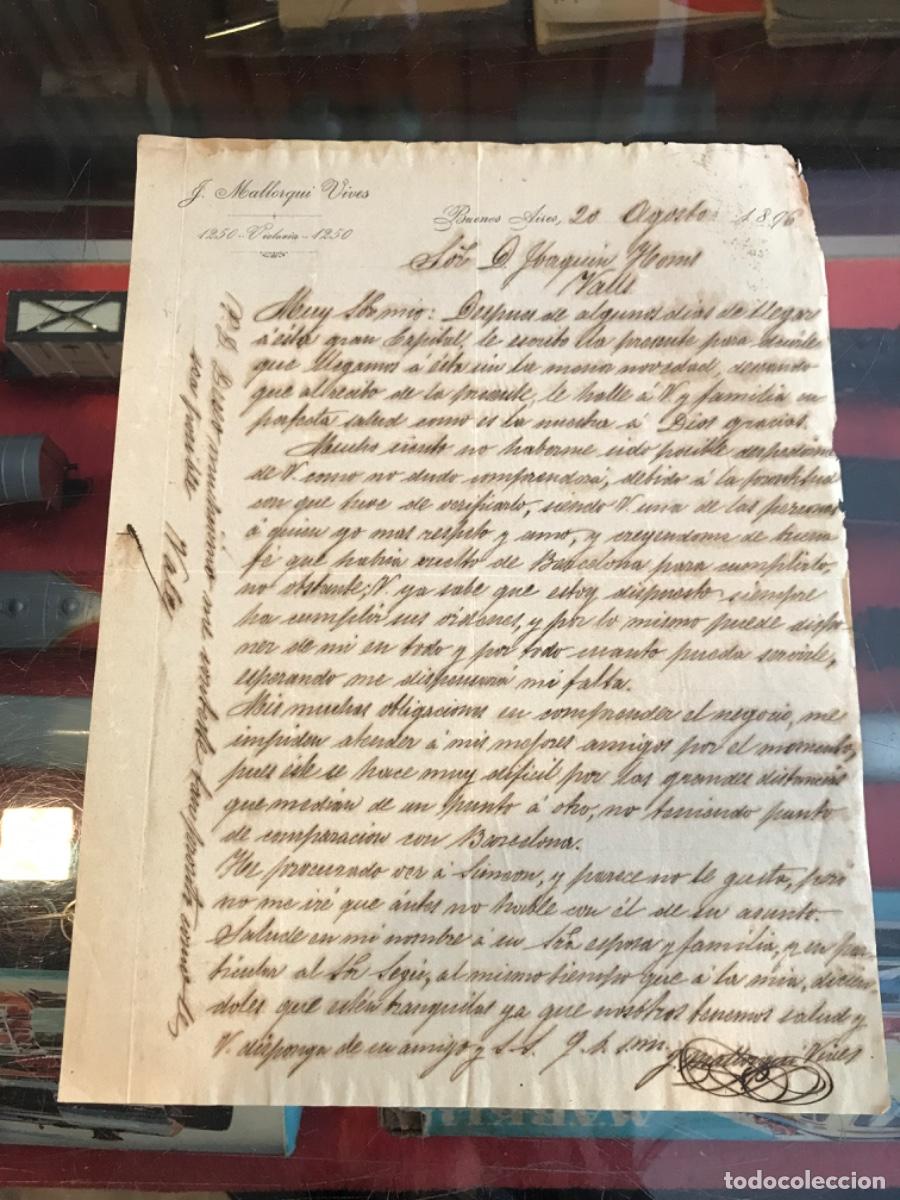 J. Mallorqui Vives
1250-Victoria-1250
Buenos Aires, 20 Agosto 1896
Sor. D. Joaquin Homs
Valls
Muy Sr. mio: Despues de algunos dias de llegar
á ésta gran Capital, le escribo la presente para decirle
que llegamos á ésta sin la menor novedad, deseando
que al recibo de la presente, le halle á V. y familia en
perfecta salud como es la nuestra á Dios gracias.
Mucho siento no haberme sido posible despedirme
de V. como no dudo comprenderá, debido á la prontitud
con que tuve de verificarlo, siendo V. una de las personas
á quien yo mas respeto y amo, y creyendome de buena
fé que habria vuelto de Barcelona para cumplirlo,
no obstante, V. ya sabe que estoy dispuesto siempre
ha cumplir sus órdenes, y por lo mismo puede dispo
ner de mi en todo y por todo cuanto pueda servirle,
esperando me dispensará mi falta.
Mis muchas obligaciones en comprender el negocio, me
impiden atender á mis mejores amigos por el momento,
pues éste se hace muy dificil por las grandes distancias
que median de un punto á otro, no teniendo punto
de comparacion con Barcelona.
He procurado ver á Simeon, y parece no le gusta, pero
no me iré que ántes no hable con él de su asunto.
Salude en mi nombre á su Sra esposa y familia, y en par
ticular al Sr. Segú, al mismo tiempo que á la mia, dicien
doles que estén tranquilas ya que nosotros tenemos salud y
V. disponga de su amigo y S. S. q. b. s. m.
J. Mallorqui Vives
P.D. Deseo muchisimo me conteste tan pronto como le
sea posible Vale
MARKLIN
todocoleccion